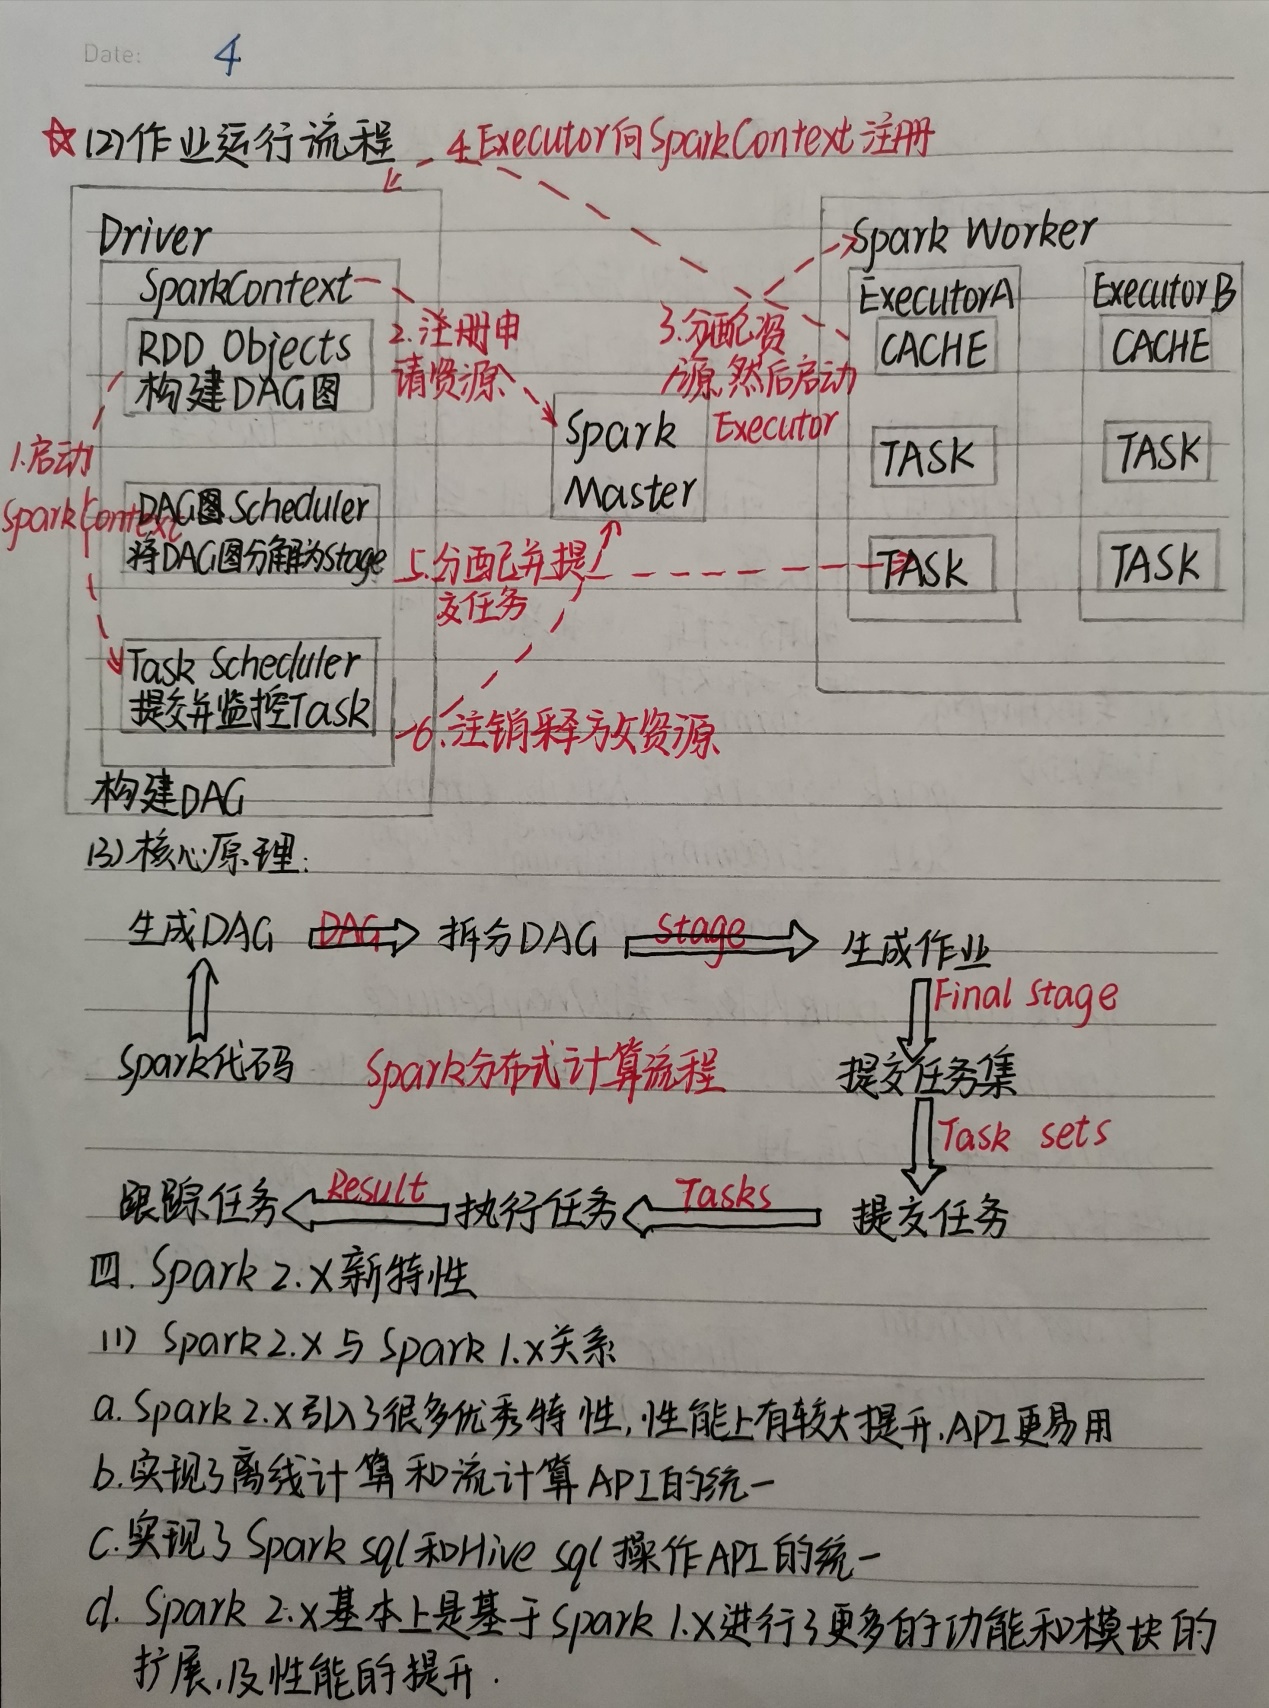 Date: 4
☆(2)作业运行流程
4.Executor向SparkContext注册
Driver
SparkContext
RDD Objects
构建DAG图
1.启动
SparkContext
DAG图Scheduler
将DAG图分解为stage
Task Scheduler
提交并监控Task
构建DAG
2.注册申
请资源
Spark
Master
3.分配资
源,然后启动
Executor
5.分配并提
交任务
6.注销释放资源
Spark Worker
ExecutorA
CACHE
TASK
TASK
ExecutorB
CACHE
TASK
TASK
(3)核心原理:
生成DAG DAG 拆分DAG Stage 生成作业
Final stage
Spark代码 Spark分布式计算流程 提交任务集
Task sets
跟踪任务 Result 执行任务 Tasks 提交任务
四. Spark 2.X新特性
(1) Spark 2.X与Spark 1.X关系
a. Spark 2.X引入了很多优秀特性,性能上有较大提升,API更易用
b.实现了离线计算和流计算API的统一
c.实现了Spark sql和Hive sql操作API的统一
d. Spark 2.X基本上是基于Spark 1.X进行了更多的功能和模块的
扩展,及性能的提升.